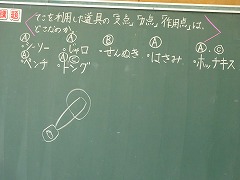 課題
てこを利用した道具の「支点」「力点」「作用点」は、
どこなのか。
Ⓐ Ⓐ Ⓑ Ⓐ Ⓐ,Ⓒ
・シーソー ・じゃ口 ・せんぬき ・はさみ ・ホッチキス
Ⓐ Ⓒ
・ペンチ ・トング